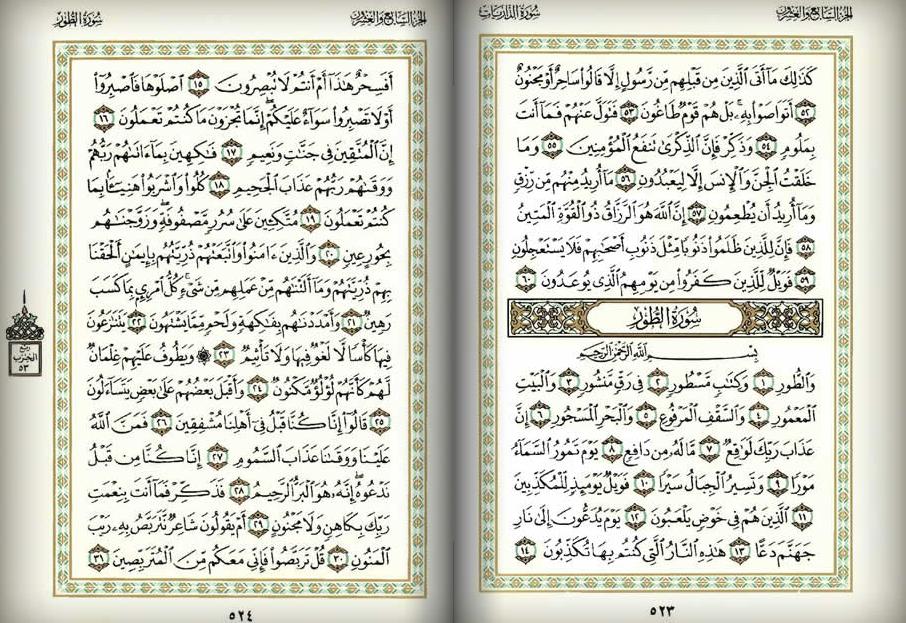 سُورَةُ الذَّارِيَاتِ
الجُزْءُ السَّابِعُ وَالعِشْرُونَ
كَذَٰلِكَ مَآ أَتَى ٱلَّذِينَ مِن قَبۡلِهِم مِّن رَّسُولٍ إِلَّا قَالُواْ سَاحِرٌ أَوۡ مَجۡنُونٌ
٥٢ أَتَوَاصَوۡاْ بِهِۦۚ بَلۡ هُمۡ قَوۡمٞ طَاغُونَ ٥٣ فَتَوَلَّ عَنۡهُمۡ فَمَآ أَنتَ
بِمَلُومٖ ٥٤ وَذَكِّرۡ فَإِنَّ ٱلذِّكۡرَىٰ تَنفَعُ ٱلۡمُؤۡمِنِينَ ٥٥ وَمَا
خَلَقۡتُ ٱلۡجِنَّ وَٱلۡإِنسَ إِلَّا لِيَعۡبُدُونِ ٥٦ مَآ أُرِيدُ مِنۡهُم مِّن رِّزۡقٖ
وَمَآ أُرِيدُ أَن يُطۡعِمُونِ ٥٧ إِنَّ ٱللَّهَ هُوَ ٱلرَّزَّاقُ ذُو ٱلۡقُوَّةِ ٱلۡمَتِينُ
٥٨ فَإِنَّ لِلَّذِينَ ظَلَمُواْ ذَنُوبٗا مِّثۡلَ ذَنُوبِ أَصۡحَٰبِهِمۡ فَلَا يَسۡتَعۡجِلُونِ
٥٩ فَوَيۡلٞ لِّلَّذِينَ كَفَرُواْ مِن يَوۡمِهِمُ ٱلَّذِي يُوعَدُونَ ٦٠
سُورَةُ الطُّورِ
بِسۡمِ ٱللَّهِ ٱلرَّحۡمَٰنِ ٱلرَّحِيمِ
وَٱلطُّورِ ١ وَكِتَٰبٖ مَّسۡطُورٖ ٢ فِي رَقّٖ مَّنشُورٖ ٣ وَٱلۡبَيۡتِ
ٱلۡمَعۡمُورِ ٤ وَٱلسَّقۡفِ ٱلۡمَرۡفُوعِ ٥ وَٱلۡبَحۡرِ ٱلۡمَسۡجُورِ ٦ إِنَّ
عَذَابَ رَبِّكَ لَوَٰقِعٞ ٧ مَّا لَهُۥ مِن دَافِعٖ ٨ يَوۡمَ تَمُورُ ٱلسَّمَآءُ
مَوۡرٗا ٩ وَتَسِيرُ ٱلۡجِبَالُ سَيۡرٗا ١٠ فَوَيۡلٞ يَوۡمَئِذٖ لِّلۡمُكَذِّبِينَ
١١ ٱلَّذِينَ هُمۡ فِي خَوۡضٖ يَلۡعَبُونَ ١٢ يَوۡمَ يُدَعُّونَ إِلَىٰ نَارِ
جَهَنَّمَ دَعًّا ١٣ هَٰذِهِ ٱلنَّارُ ٱلَّتِي كُنتُم بِهَا تُكَذِّبُونَ ١٤
٥٢٣
الجُزْءُ السَّابِعُ وَالعِشْرُونَ
سُورَةُ الطُّورِ
أَفَسِحۡرٌ هَٰذَآ أَمۡ أَنتُمۡ لَا تُبۡصِرُونَ ١٥ ٱصۡلَوۡهَا فَٱصۡبِرُوٓاْ
أَوۡ لَا تَصۡبِرُواْ سَوَآءٌ عَلَيۡكُمۡۖ إِنَّمَا تُجۡزَوۡنَ مَا كُنتُمۡ تَعۡمَلُونَ ١٦
إِنَّ ٱلۡمُتَّقِينَ فِي جَنَّٰتٖ وَنَعِيمٖ ١٧ فَٰكِهِينَ بِمَآ ءَاتَىٰهُمۡ رَبُّهُمۡ
وَوَقَىٰهُمۡ رَبُّهُمۡ عَذَابَ ٱلۡجَحِيمِ ١٨ كُلُواْ وَٱشۡرَبُواْ هَنِيٓـَٔۢا بِمَا
كُنتُمۡ تَعۡمَلُونَ ١٩ مُتَّكِـِٔينَ عَلَىٰ سُرُرٖ مَّصۡفُوفَةٖۖ وَزَوَّجۡنَٰهُم
بِحُورٍ عِينٖ ٢٠ وَٱلَّذِينَ ءَامَنُواْ وَٱتَّبَعَتۡهُمۡ ذُرِّيَّتُهُم بِإِيمَٰنٍ أَلۡحَقۡنَا
بِهِمۡ ذُرِّيَّتَهُمۡ وَمَآ أَلَتۡنَٰهُم مِّنۡ عَمَلِهِم مِّن شَيۡءٖۚ كُلُّ ٱمۡرِيِٕۭ بِمَا كَسَبَ
رَهِينٞ ٢١ وَأَمۡدَدۡنَٰهُم بِفَٰكِهَةٖ وَلَحۡمٖ مِّمَّا يَشۡتَهُونَ ٢٢ يَتَنَٰزَعُونَ
فِيهَا كَأۡسٗا لَّا لَغۡوٞ فِيهَا وَلَا تَأۡثِيمٞ ٢٣ ۞ وَيَطُوفُ عَلَيۡهِمۡ غِلۡمَانٞ
لَّهُمۡ كَأَنَّهُمۡ لُؤۡلُؤٞ مَّكۡنُونٞ ٢٤ وَأَقۡبَلَ بَعۡضُهُمۡ عَلَىٰ بَعۡضٖ يَتَسَآءَلُونَ
٢٥ قَالُوٓاْ إِنَّا كُنَّا قَبۡلُ فِيٓ أَهۡلِنَا مُشۡفِقِينَ ٢٦ فَمَنَّ ٱللَّهُ
عَلَيۡنَا وَوَقَىٰنَا عَذَابَ ٱلسَّمُومِ ٢٧ إِنَّا كُنَّا مِن قَبۡلُ
نَدۡعُوهُۖ إِنَّهُۥ هُوَ ٱلۡبَرُّ ٱلرَّحِيمُ ٢٨ فَذَكِّرۡ فَمَآ أَنتَ بِنِعۡمَتِ
رَبِّكَ بِكَاهِنٖ وَلَا مَجۡنُونٍ ٢٩ أَمۡ يَقُولُونَ شَاعِرٞ نَّتَرَبَّصُ بِهِۦ رَيۡبَ
ٱلۡمَنُونِ ٣٠ قُلۡ تَرَبَّصُواْ فَإِنِّي مَعَكُم مِّنَ ٱلۡمُتَرَبِّصِينَ ٣١
ربع
الحزب
٥٣
٥٢٤